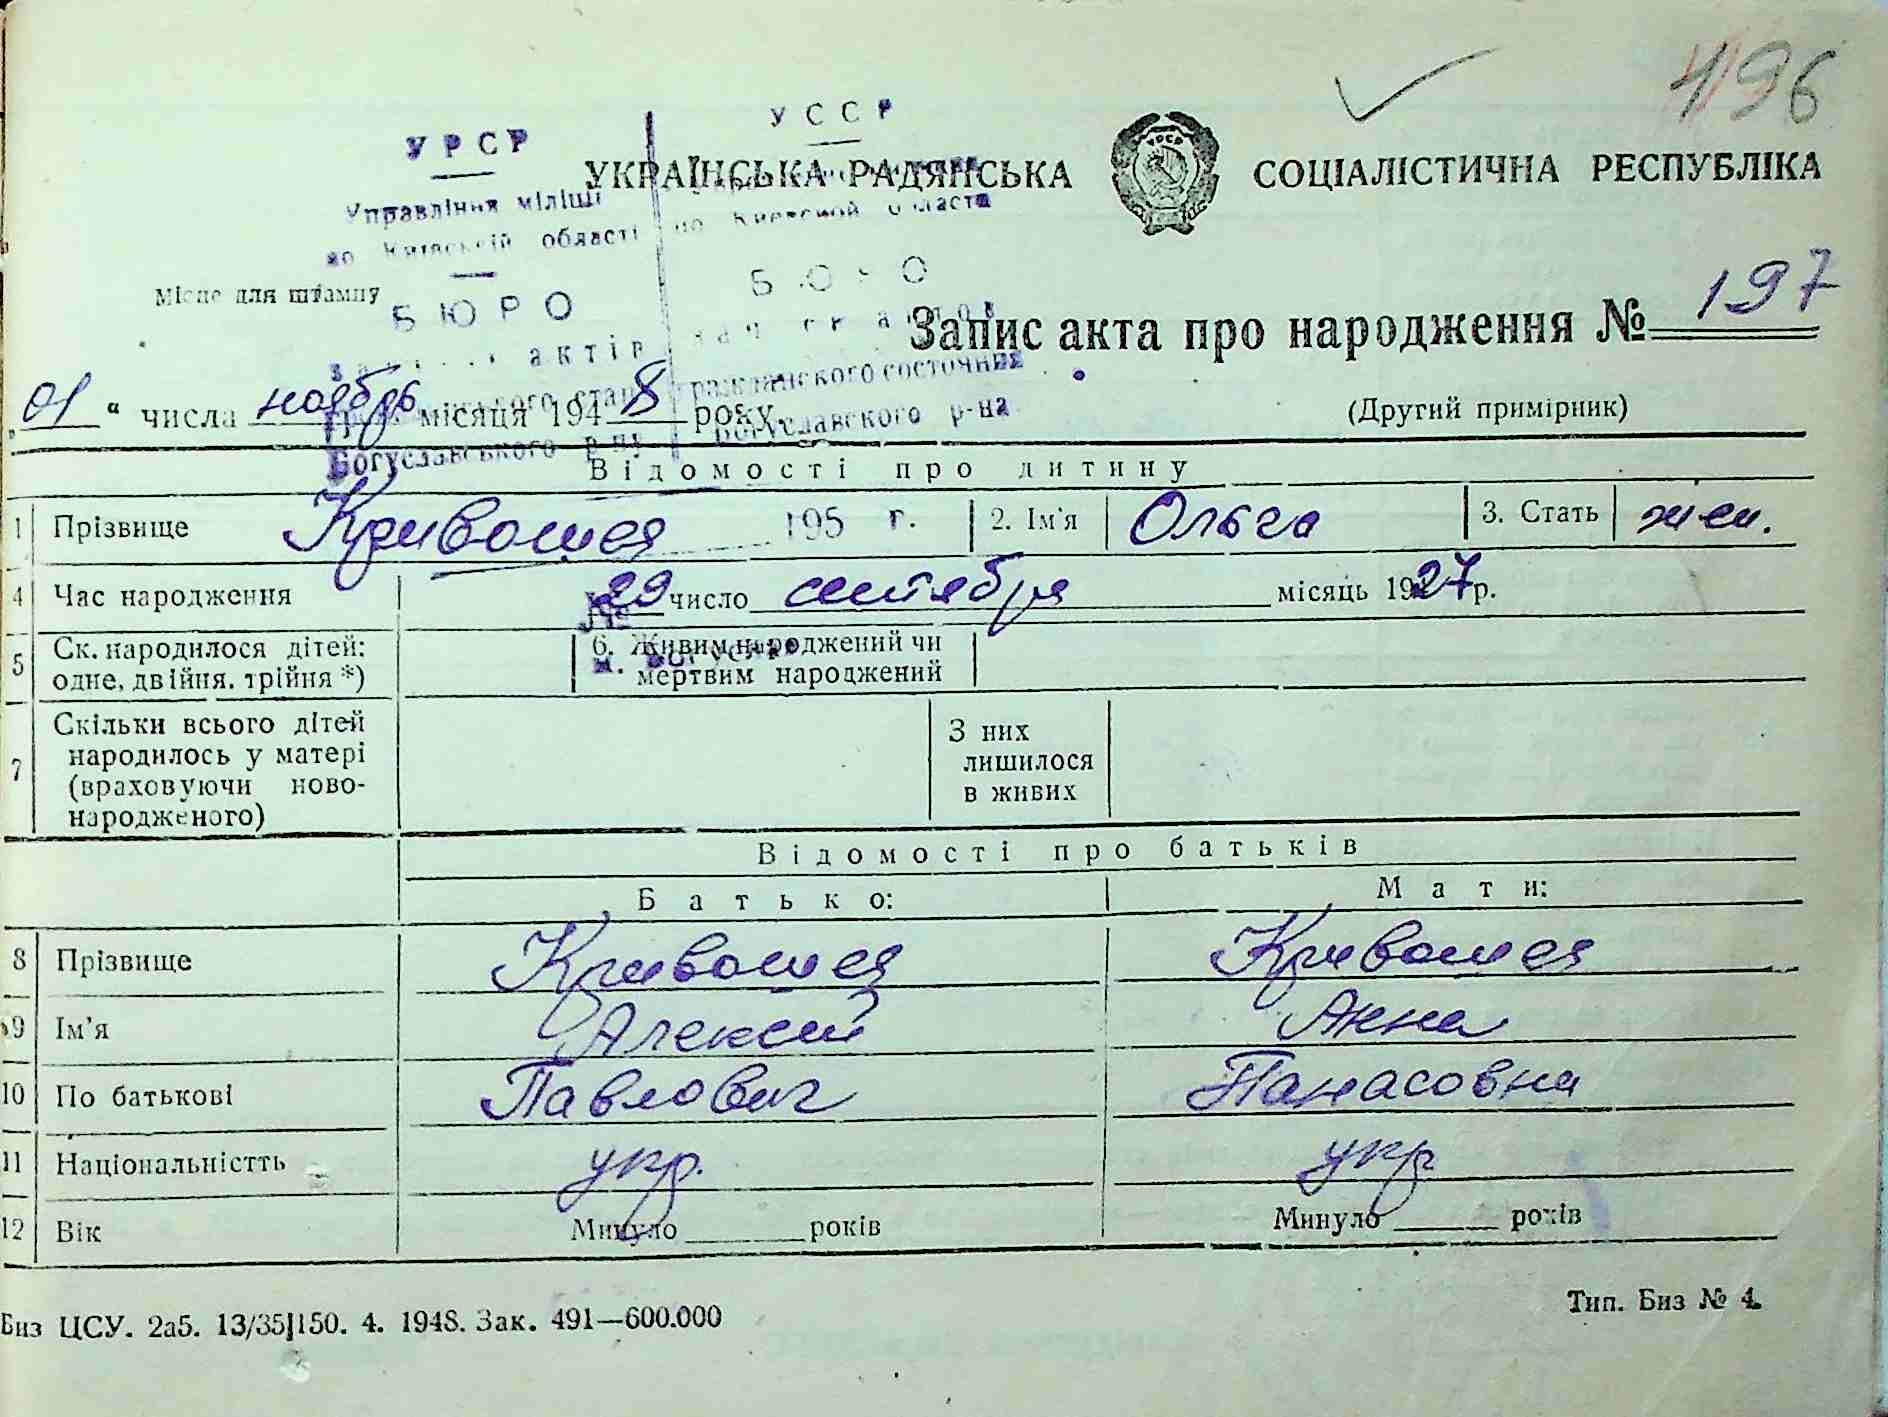 496
УРСР
УССР
УКРАЇНСЬКА РАДЯНСЬКА СОЦІАЛІСТИЧНА РЕСПУБЛІКА
УРСР
Управління міліції
по Київській області по Киевской области
Місце для штампу
БЮРО БЮРО
Запис акта про народження № 197
актів
„01“ числа ноября місяця 1948 року. гражданского состояния
(Другий примірник)
Богуславського р-ну Богуславского р-на
Відомості про дитину
1 Прізвище Кривошея 195 г. 2. Ім'я Ольга 3. Стать жен.
4 Час народження 29 число сентября місяць 1927 р.
№
5 Ск. народилося дітей: одне, двійня, трійня *) 6. Живим народжений чи мертвим народжений
м. Богуслав
7 Скільки всього дітей народилось у матері (враховуючи ново-народженого) З них лишилося в живих
Відомості про батьків
Батько: Мати:
8 Прізвище Кривошея Кривошея
9 Ім'я Алексей Анна
10 По батькові Павлович Панасовна
11 Національністть укр. укр
12 Вік Минуло ______ років Минуло ______ років
Биз ЦСУ. 2а5. 13/35|150. 4. 1948. Зак. 491—600.000
Тип. Биз № 4.